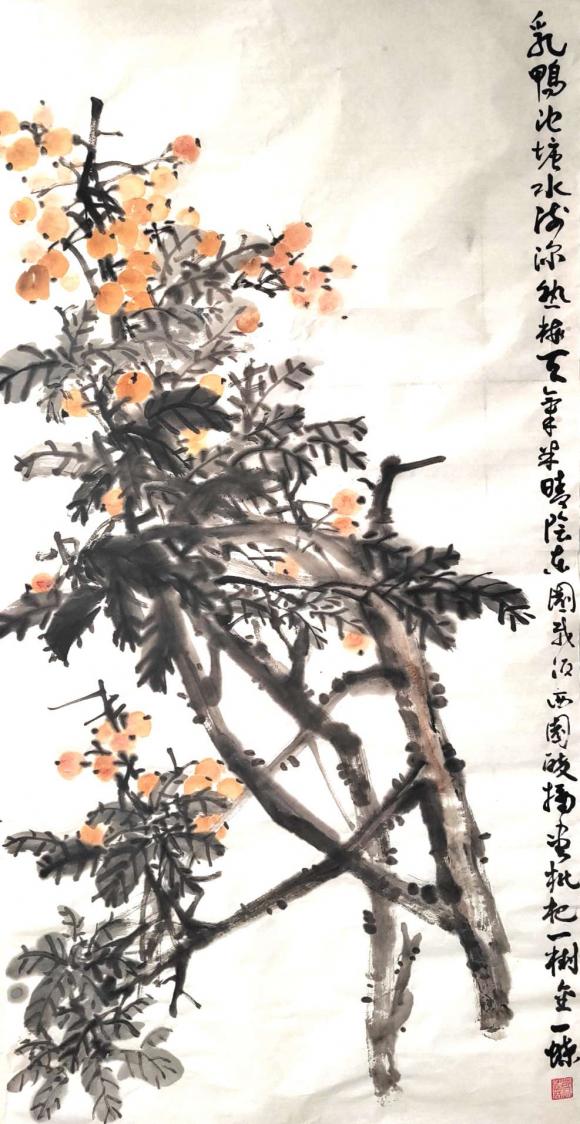 乳鴨池塘水浅深熟梅天氣半晴陰东園載酒西園醉摘尽枇杷一樹金一